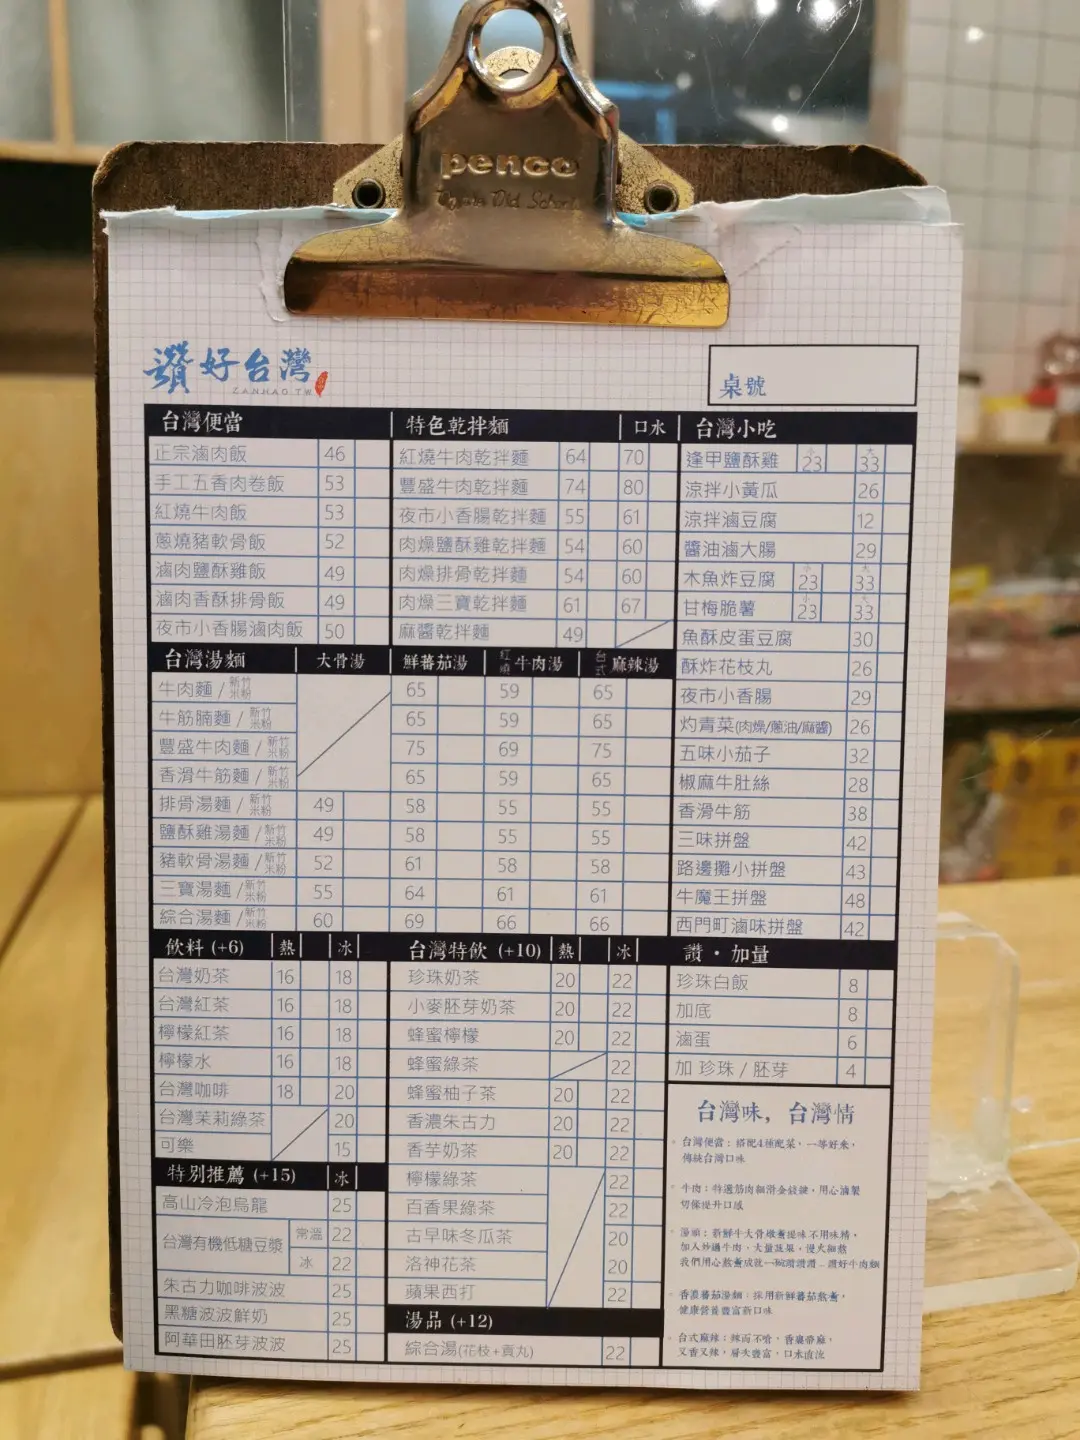 penco
讚好台灣
ZANHAO.TW
桌號
台灣便當
正宗滷肉飯 46
手工五香肉卷飯 53
紅燒牛肉飯 53
蔥燒豬軟骨飯 52
滷肉鹽酥雞飯 49
滷肉香酥排骨飯 49
夜市小香腸滷肉飯 50
特色乾拌麵 口水
紅燒牛肉乾拌麵 64 70
豐盛牛肉乾拌麵 74 80
夜市小香腸乾拌麵 55 61
肉燥鹽酥雞乾拌麵 54 60
肉燥排骨乾拌麵 54 60
肉燥三寶乾拌麵 61 67
麻醬乾拌麵 49
台灣小吃
逢甲鹽酥雞 小23 大33
涼拌小黃瓜 26
涼拌滷豆腐 12
醬油滷大腸 29
木魚炸豆腐 小23 大33
甘梅脆薯 小23 大33
魚酥皮蛋豆腐 30
酥炸花枝丸 26
夜市小香腸 29
灼青菜(肉燥/蔥油/麻醬) 26
五味小茄子 32
椒麻牛肚絲 28
香滑牛筋 38
三味拼盤 42
路邊攤小拼盤 43
牛魔王拼盤 48
西門町滷味拼盤 42
台灣湯麵 大骨湯 鮮蕃茄湯 紅燒牛肉湯 台式麻辣湯
牛肉麵/新竹米粉 65 59 65
牛筋腩麵/新竹米粉 65 59 65
豐盛牛肉麵/新竹米粉 75 69 75
香滑牛筋麵/新竹米粉 65 59 65
排骨湯麵/新竹米粉 49 58 55 55
鹽酥雞湯麵/新竹米粉 49 58 55 55
豬軟骨湯麵/新竹米粉 52 61 58 58
三寶湯麵/新竹米粉 55 64 61 61
綜合湯麵/新竹米粉 60 69 66 66
飲料 (+6) 熱 冰
台灣奶茶 16 18
台灣紅茶 16 18
檸檬紅茶 16 18
檸檬水 16 18
台灣咖啡 18 20
台灣茉莉綠茶 20
可樂 15
特別推薦 (+15) 冰
高山冷泡烏龍 25
台灣有機低糖豆漿 常溫 22
冰 22
朱古力咖啡波波 25
黑糖波波鮮奶 25
阿華田胚芽波波 25
台灣特飲 (+10) 熱 冰
珍珠奶茶 20 22
小麥胚芽奶茶 20 22
蜂蜜檸檬 20 22
蜂蜜綠茶 22
蜂蜜柚子茶 20 22
香濃朱古力 20 22
香芋奶茶 20 22
檸檬綠茶 22
百香果綠茶 22
古早味冬瓜茶 20
洛神花茶 20
蘋果西打 22
湯品 (+12)
綜合湯(花枝+貢丸) 22
讚·加量
珍珠白飯 8
加底 8
滷蛋 6
加 珍珠/胚芽 4
台灣味，台灣情
台灣便當：搭配4種配菜，一等好米，
傳統台灣口味
牛肉：特選筋肉細滑金錢腱，用心滷製
切條提升口感
湯頭：新鮮牛大骨燉煮提味不用味精，
加入炒過牛肉，大量蔬菜，慢火細熬
香濃蕃茄湯麵：採用新鮮蕃茄熬煮，
健康營養豐富新口味
台式麻辣：辣而不嗆，香裹帶麻，
又香又辣，層次豐富，口水直流